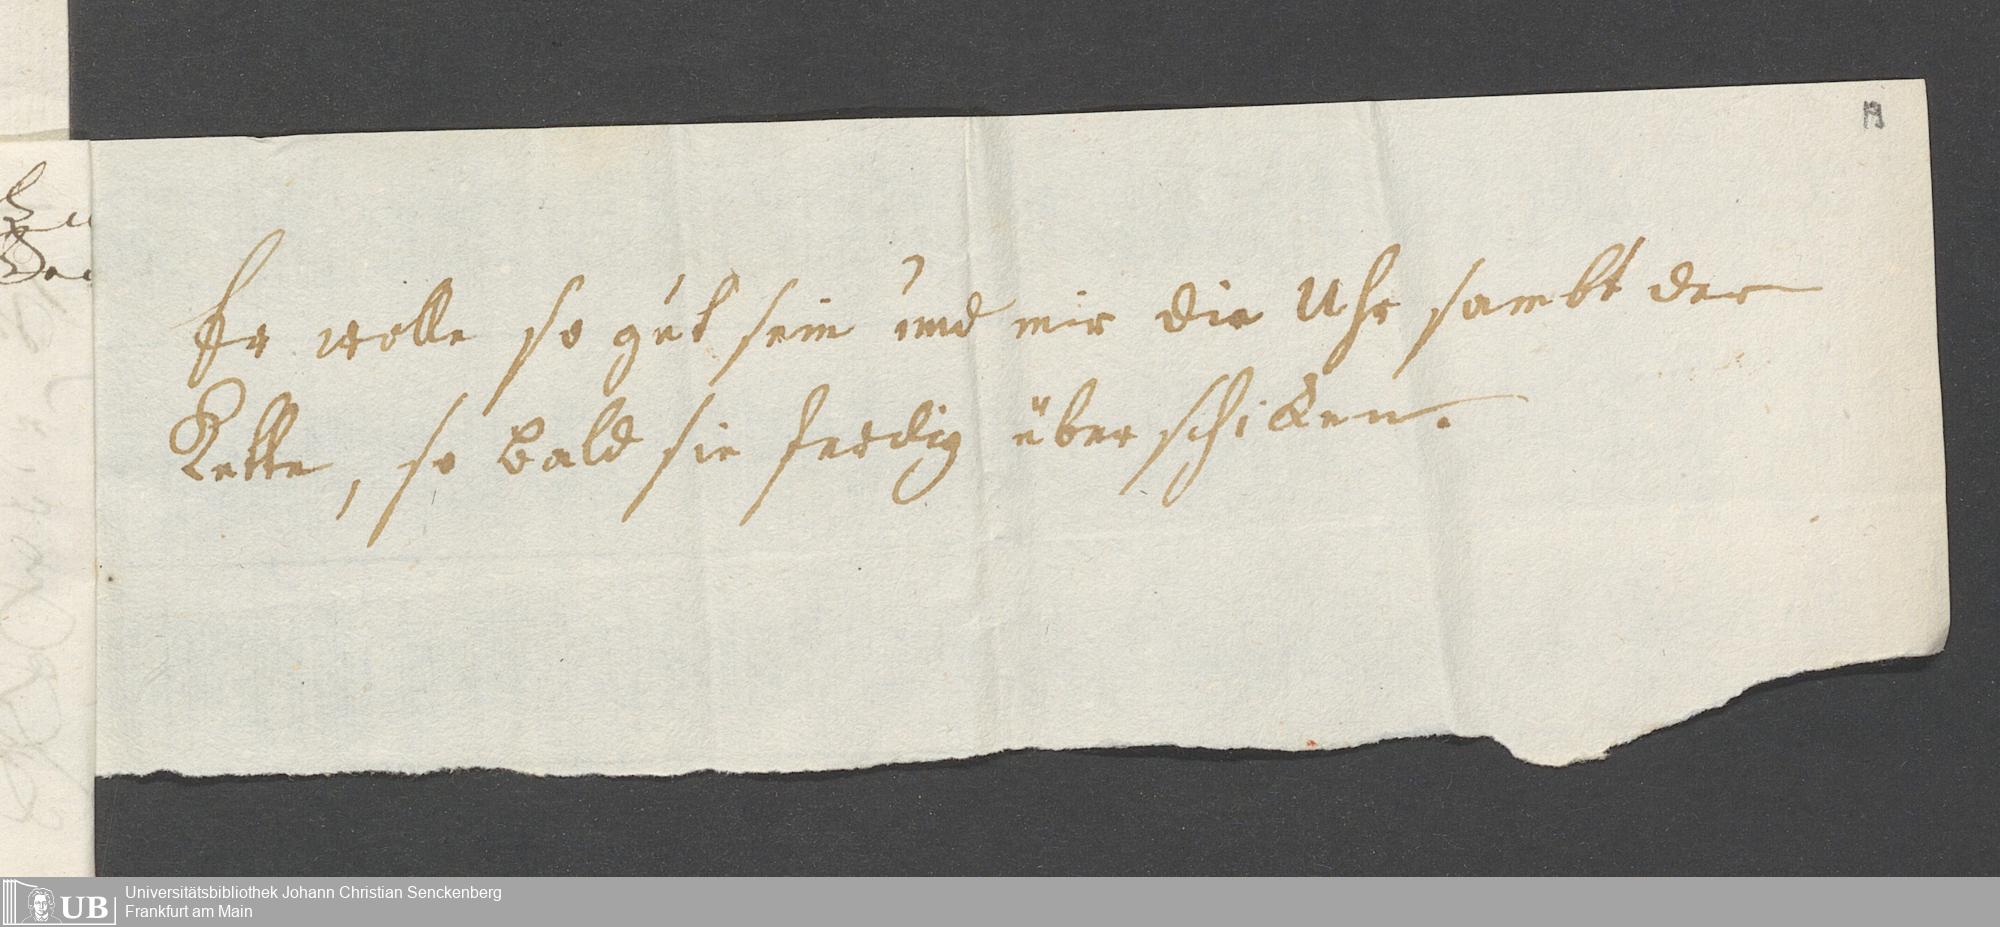 Er wolle so gut sein und mir die Uhr sambt der
Kette, so bald sie ferdig überschicken.
UB
Universitätsbibliothek Johann Christian Senckenberg
Frankfurt am Main